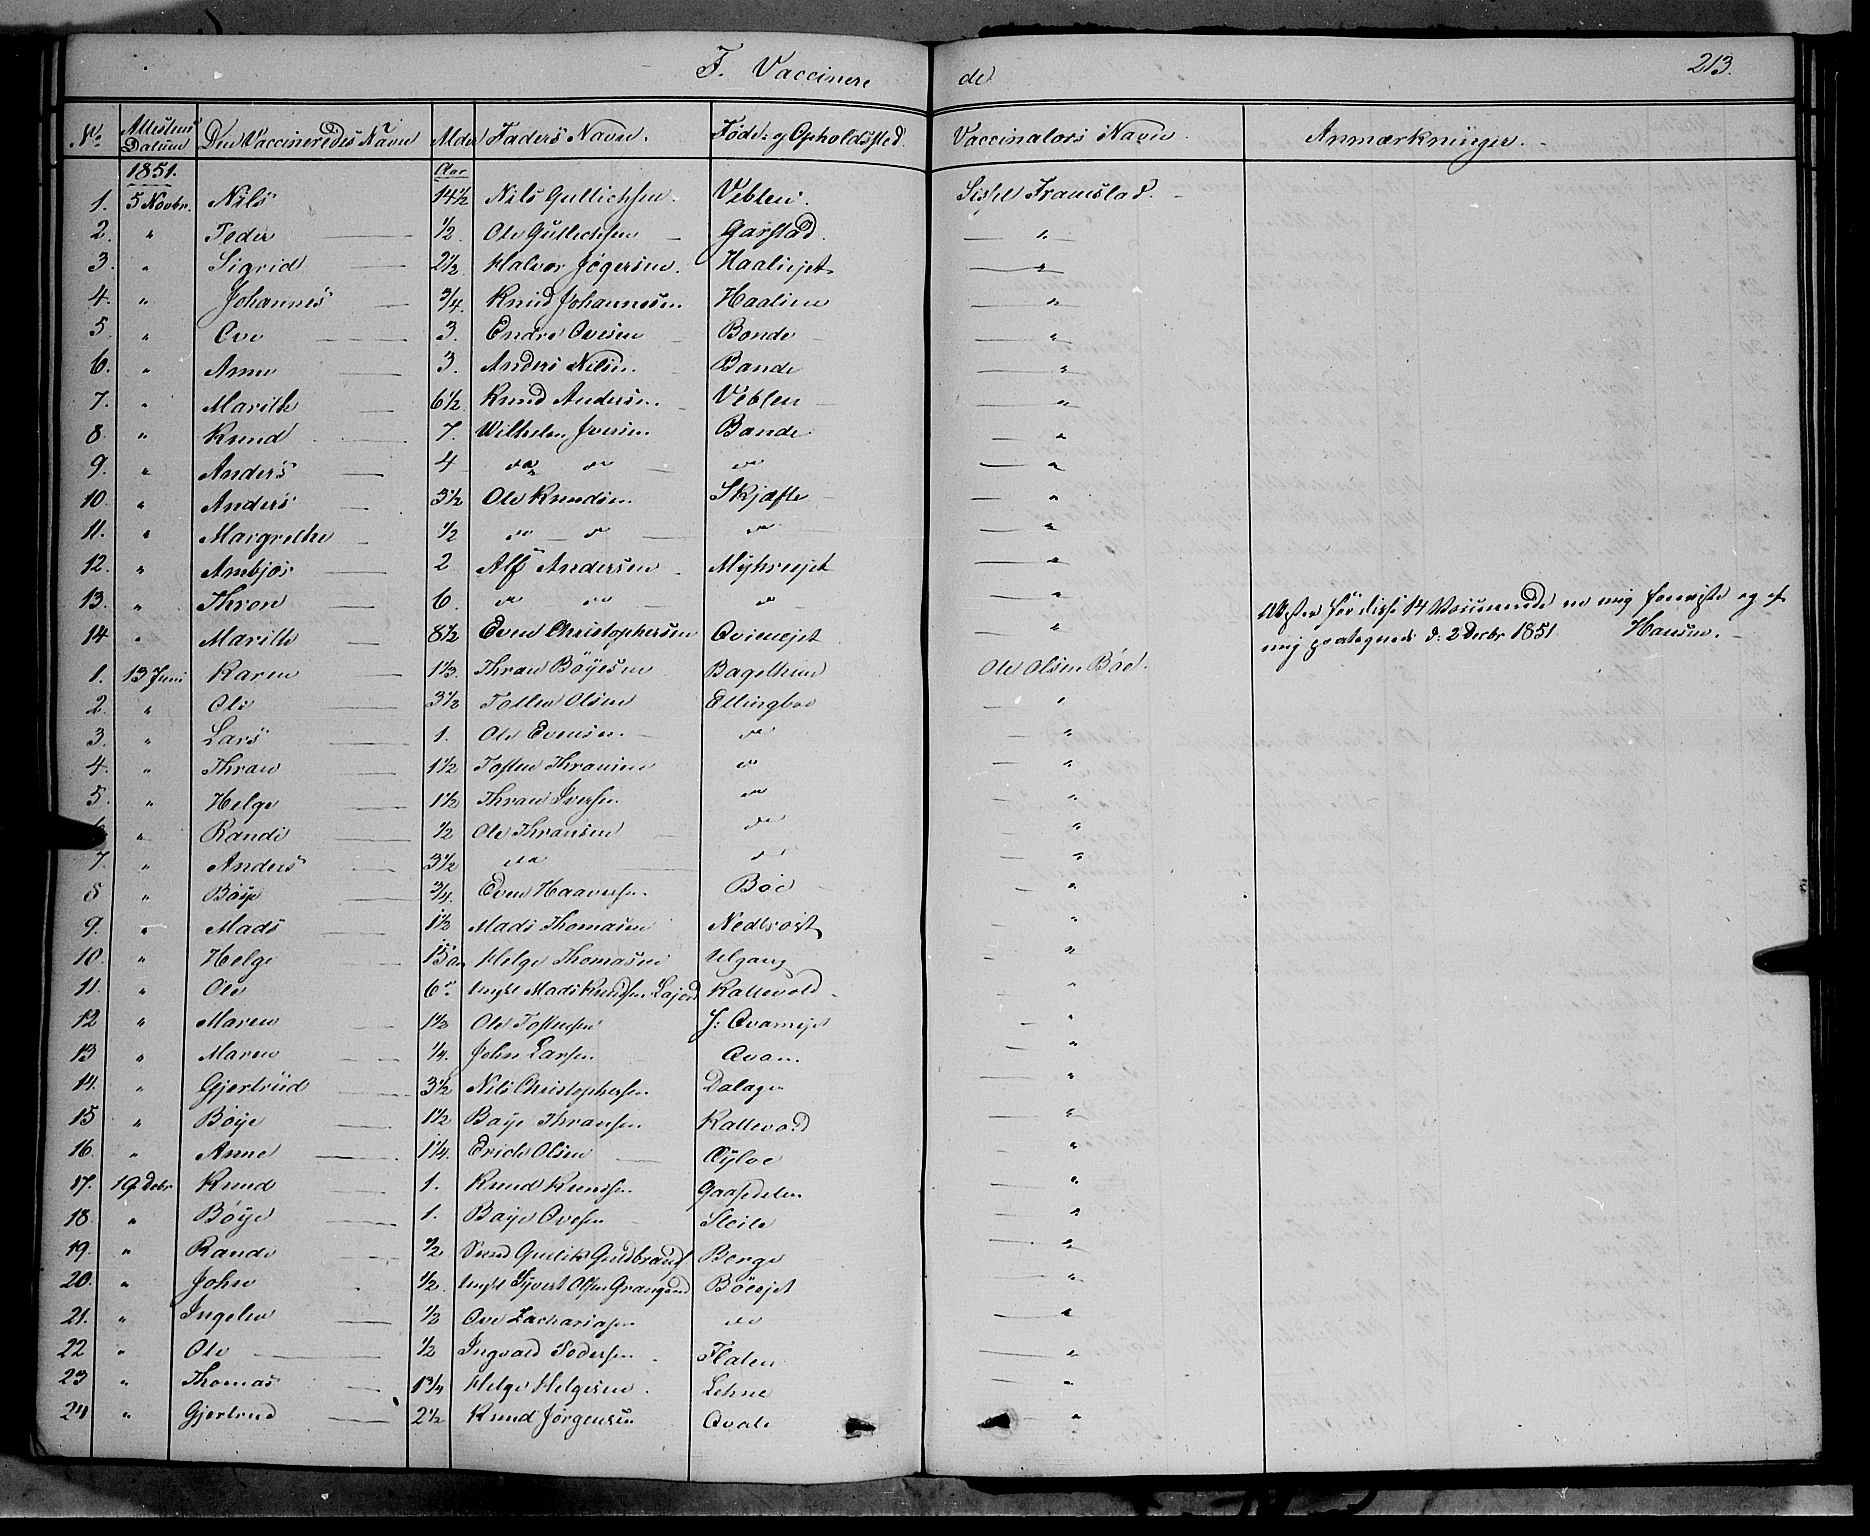 F. Vaccinere de 213.
No. Attestens Datum Den Vaccineredes Navn Alder Faders Navn. Føde- og Opholdssted. Vaccinators Navn Anmærkninger.
1851. Aar
1. 5 Novbr. Nils 14 1/2 Nils Gullichsen. Veblen. Sissel Framstad.
2. " Peder 1/2 Ole Gullichsen Garstad. "
3. " Sigrid 2 1/2 Halvor Jøgersen. Haaliejet "
4. " Johannes 3/4 Knud Johannesen Haalien "
5. " Ove 3. Endre Ovesen Bonde "
6. " Anne 3. Anders Nilsen Bande "
7. " Marithe 6 1/2 Knud Andersen. Veblen "
8. " Knud 7. Wilhelm Iversen Bande "
9. " Anders 4 do do do "
10. " Anders 3 1/2 Ole Knudsen Skjefte "
11. " Margrethe 1/2 do do do "
12. " Ambjør 2 Alf Andersen Myhreejet "
13. " Thron 6. do do do " Attester for disse 14 Vaccinerede ere mig foreviste og af
14. " Marithe 8 1/2 Even Christophersen Qvienejet " mig paategnede d: 2 Decbr 1851. Hansen.
1. 13 Juni Karen 1 1/3. Thran Bøyesen Bagethun Ole Olsen Bøe.
2. " Ole 3 1/2 Tosten Olsen Ellingboe "
3. " Lars 1. Ole Evensen do "
4. " Thran 1 1/2 Tosten Thransen do "
5. " Helge 1 1/2 Thran Iversen do "
6. " Randi 1/2 Ole Thransen do "
7. " Anders 3 1/2 do do "
8 " Bøye 3/4. Even Haaversen. Bøe "
9. " Mads 1 1/2 Mads Thomasen Nedrøst "
10. " Helge 15 Helge Thomasen Udgang "
11. " Ole 6 Ungkl Mads Knudsen Kattevold "
12 " Maren 1 1/2 Ole Tostensen J: Qvamejet "
13 " Maren 1/4. John Larsen Qvam. "
14. " Gjertrud 3 1/2 Nils Christophersen Dalagen "
15 " Bøye 1 1/2 Baye Thransen Kattevold "
16. " Anne 1 1/4. Erich Olsen Øyloe "
17. 19 Debr Knud 1. Knud Knudsen Gaasedelen "
18. " Bøye 1. Baye Ovesen Steile "
19. " Randi 1/2 Gullik Guldbrands Berge "
20. " John 1/2. Ungkl Syvert Olsen Bøeejet "
21. " Ingelev 1/2 Ove Zachariasen do "
22 " Ole 1/2 Ingvald Pedersen Flaten "
23 " Thomas 1 3/4 Helge Helgesen. Lehne "
24 " Gjertrud 2 1/2 Knud Jørgensen Qvale "